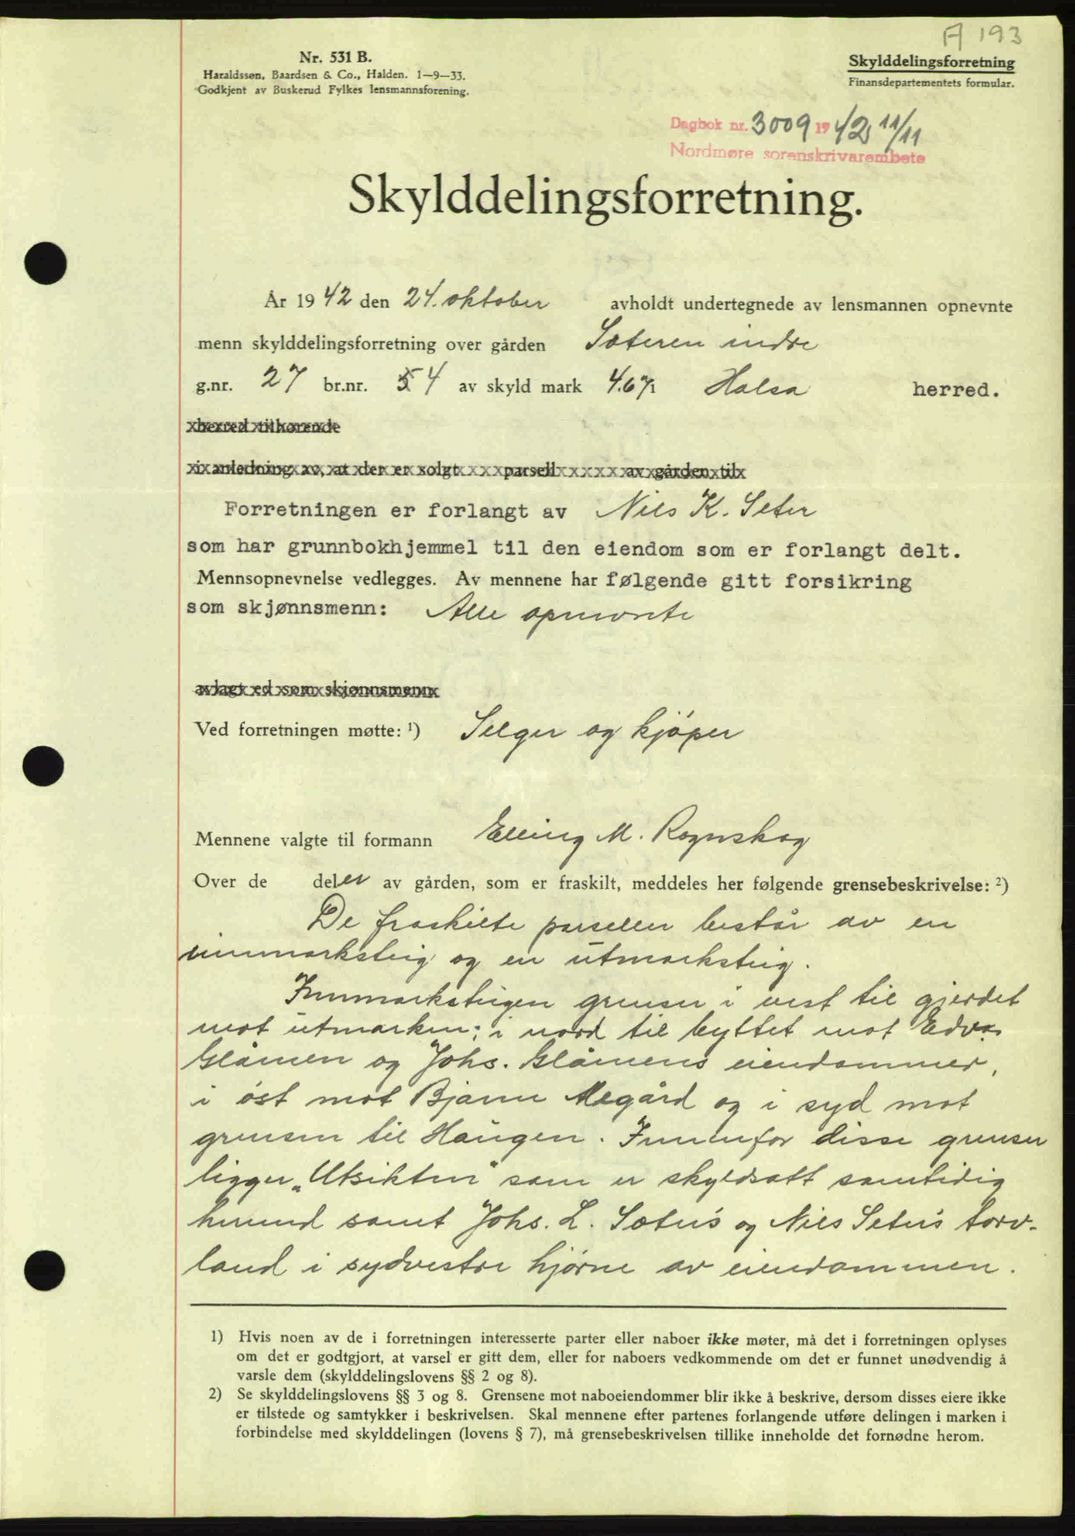 A 193
Nr. 531 B.
Haraldssen, Baardsen & Co., Halden. 1—9—33.
Godkjent av Buskerud Fylkes lensmannsforening.
Skylddelingsforretning
Finansdepartementets formular.
Dagbok nr. 3009 1942 11/11
Nordmøre sorenskrivarembete
Skylddelingsforretning.
År 1942 den 24. oktober avholdt undertegnede av lensmannen opnevnte
menn skylddelingsforretning over gården Sæteren indre
g.nr. 27 br.nr. 4 av skyld mark 4.67 i Halsa herred.
herred tilhørende
i anledning av, at der er solgt parsell av gården til
Forretningen er forlangt av Nils K. Seter
som har grunnbokhjemmel til den eiendom som er forlangt delt.
Mennsopnevnelse vedlegges. Av mennene har følgende gitt forsikring
som skjønnsmenn: Alle opnevnte
avlagt ed som skjønnsmenn
Ved forretningen møtte: ¹) Selger og kjöper
Mennene valgte til formann Elling M. Rognskog
Over de deler av gården, som er fraskilt, meddeles her følgende grensebeskrivelse: ²)
De fraskilte parseller består av en
innmarksteig og en utmarksteig.
Innmarksteigen grenser i vest til gjerdet
mot utmarken; i nord til byttet mot Edv.
Glåmen og Johs. Glåmens eiendommer,
i öst mot Bjarne Megård og i syd mot
grensen til Haugen. Innenfor disse grenser
ligger „Utsikten" som er skyldsatt samtidig
herved samt Johs. L. Sæter's og Nils Seter's torv-
land i sydvestre hjörne av eiendommen.
1) Hvis noen av de i forretningen interesserte parter eller naboer ikke møter, må det i forretningen oplyses
om det er godtgjort, at varsel er gitt dem, eller for naboers vedkommende om det er funnet unødvendig å
varsle dem (skylddelingslovens §§ 2 og 8).
2) Se skylddelingslovens §§ 3 og 8. Grensene mot naboeiendommer blir ikke å beskrive, dersom disses eiere ikke
er tilstede og samtykker i beskrivelsen. Skal mennene efter partenes forlangende utføre delingen i marken i
forbindelse med skylddelingen (lovens § 7), må grensebeskrivelsen tillike inneholde det fornødne herom.